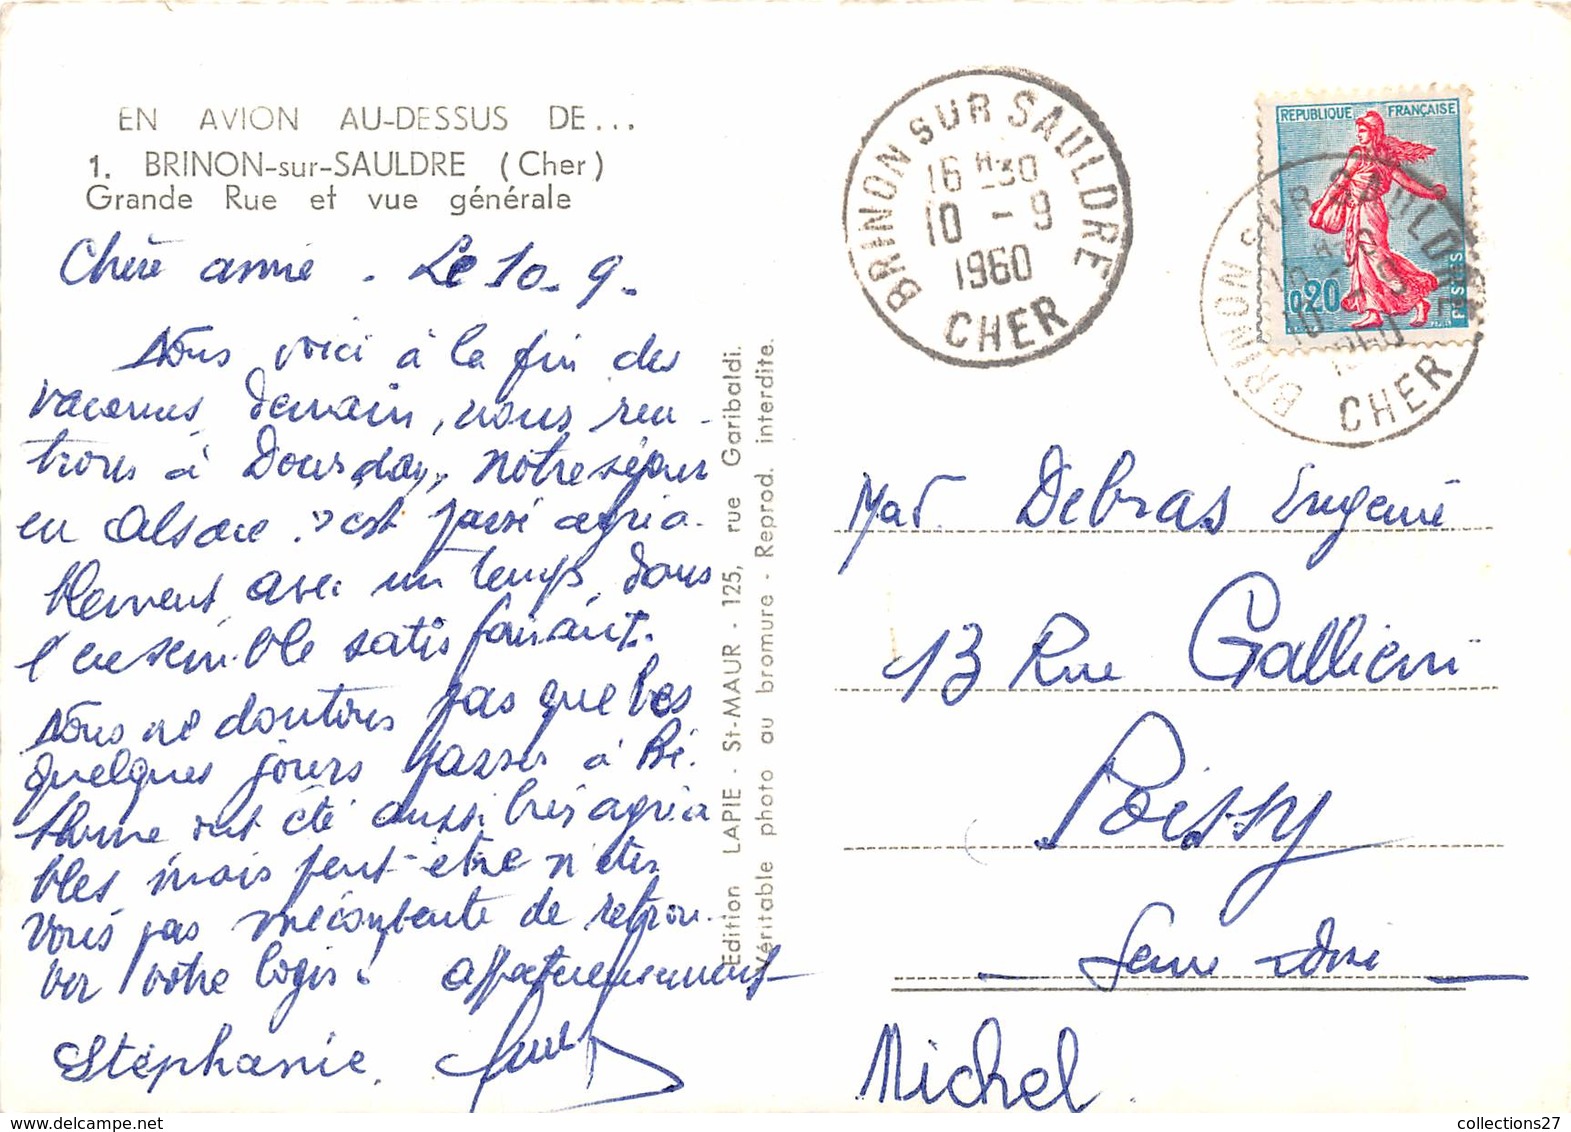 EN AVION AU-DESSUS DE...
1. BRINON-sur-SAULDRE (Cher)
Grande Rue et vue générale
Chère amie. Le 10-9-
Nous voici à la fin des
vacances, demain, nous ren-
trons à Dourdan, notre séjour
en Alsace s'est passé agréa-
blement avec un temps dans
l'ensemble satisfaisant.
Nous ne doutons pas que vos
quelques jours passés à Bé.
thune ont été aussi très agréa
bles mais peut-être n'êtes
vous pas mécontente de retrou-
ver votre logis. affectueusement
Stéphanie.
Edition LAPIE - St-MAUR - 125, rue Garibaldi.
Véritable photo au bromure - Reprod. interdite.
BRINON SUR SAULDRE
16 H 30
10 - 9
1960
CHER
REPUBLIQUE FRANÇAISE
0,20
POSTES
BRINON SUR SAULDRE
16 H 30
10 - 9
1960
CHER
Mad. Debras Eugenie
13 Rue Gallieni
Poissy
Seine et Oise
Michel.
collections27